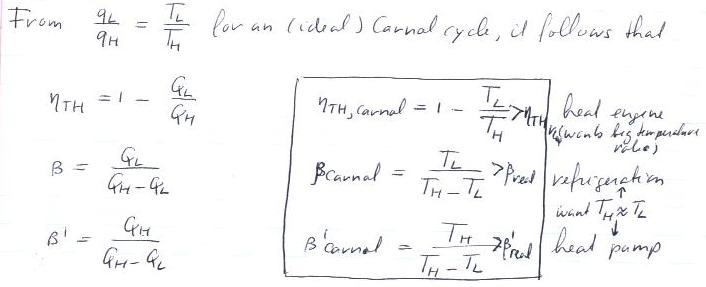 From qL/qH = TL/TH for an (ideal) Carnot cycle, it follows that
ηTH = 1 − QL/QH
ηTH, carnot = 1 − TL/TH > ηTH heat engine
(wants big temperature ratio)
β = QL/(QH − QL)
βcarnot = TL/(TH − TL) > βreal refrigeration
↑
want TH ≈ TL
↓
β' = QH/(QH − QL)
β'carnot = TH/(TH − TL) > β'real heat pump